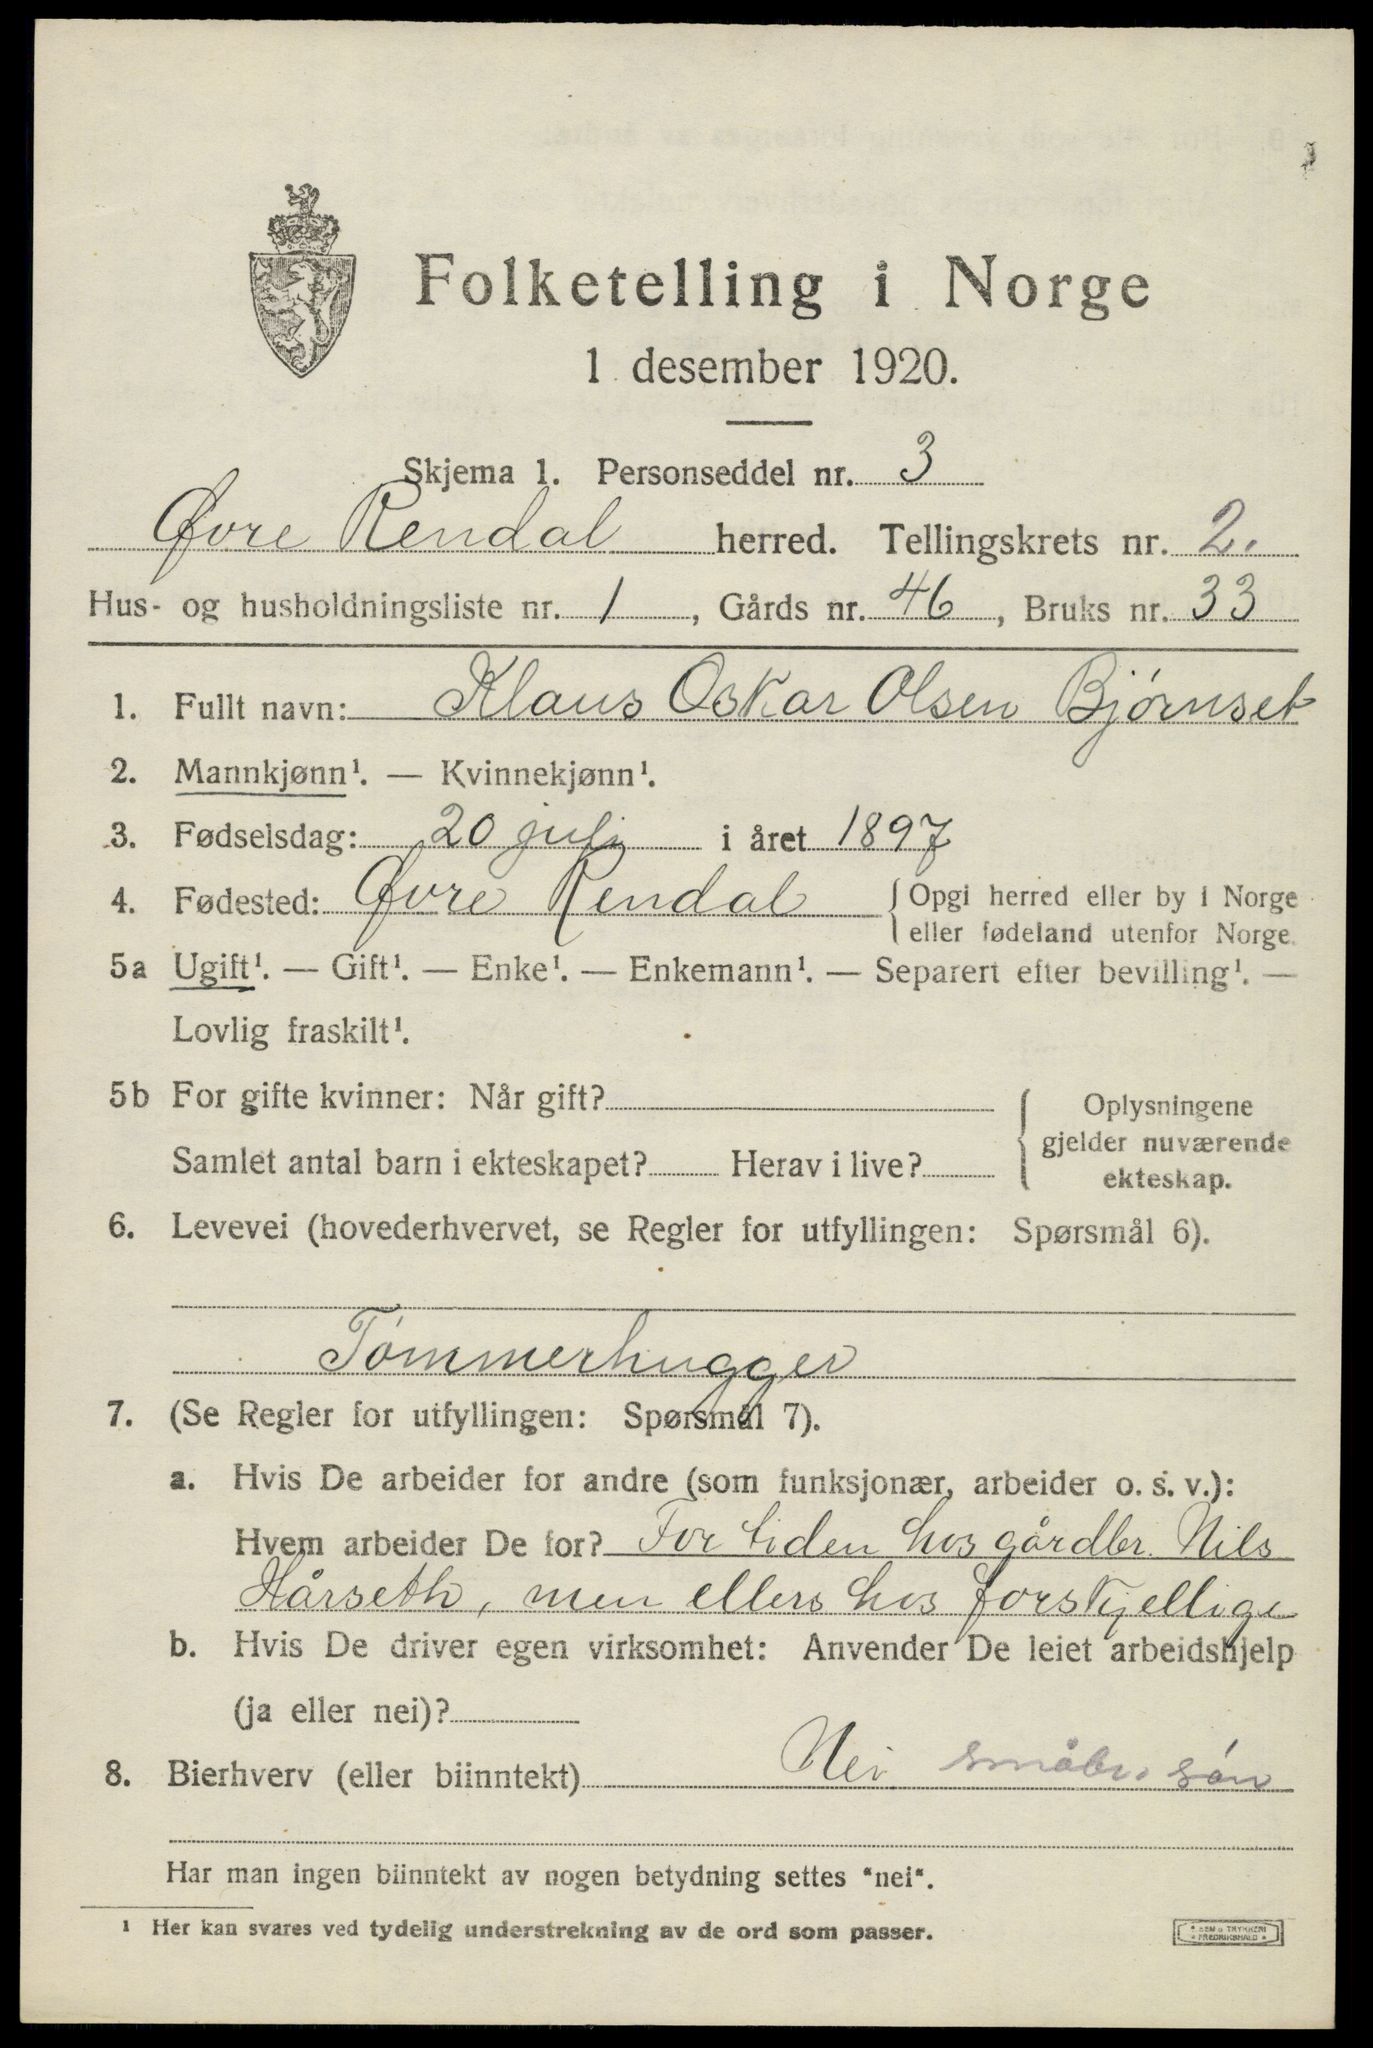 Folketelling i Norge
1 desember 1920.
Skjema 1. Personseddel nr. 3
Øvre Rendal herred. Tellingskrets nr. 2.
Hus- og husholdningsliste nr. 1, Gårds nr. 46, Bruks nr. 33
1. Fullt navn: Klaus Oskar Olsen Bjørnset
2. Mannkjønn¹. — Kvinnekjønn¹.
3. Fødselsdag: 20 juli i året 1897
4. Fødested: Øvre Rendal { Opgi herred eller by i Norge
eller fødeland utenfor Norge.
5a Ugift¹. — Gift¹. — Enke¹. — Enkemann¹. — Separert efter bevilling¹. —
Lovlig fraskilt¹.
5b For gifte kvinner: Når gift? { Oplysningene
gjelder nuværende
Samlet antal barn i ekteskapet? Herav i live?
ekteskap.
6. Levevei (hovederhvervet, se Regler for utfyllingen: Spørsmål 6).
Tømmerhugger
7. (Se Regler for utfyllingen: Spørsmål 7).
a. Hvis De arbeider for andre (som funksjonær, arbeider o. s. v.):
Hvem arbeider De for? For tiden hos gårdbr. Nils
Hårseth, men ellers hos forskjellige
b. Hvis De driver egen virksomhet: Anvender De leiet arbeidshjelp
(ja eller nei)?
8. Bierhverv (eller biinntekt) Nei småbr. søn
Har man ingen biinntekt av nogen betydning settes "nei".
¹ Her kan svares ved tydelig understrekning av de ord som passer.
TRYKKERI
FREDRIKSHALD